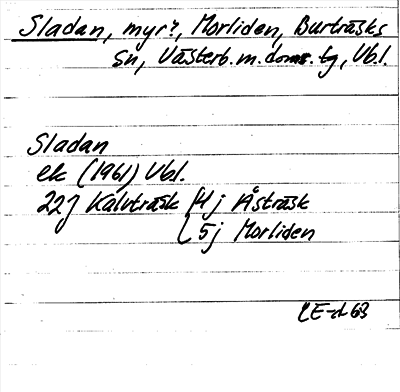 Sladan, myr?, Morliden, Burträsks
sn, Västerb. m. doms. tg, Vbl.
Sladan
ek (1961) Vbl.
22J Kalvträsk 4j Åsträsk
5j Morliden